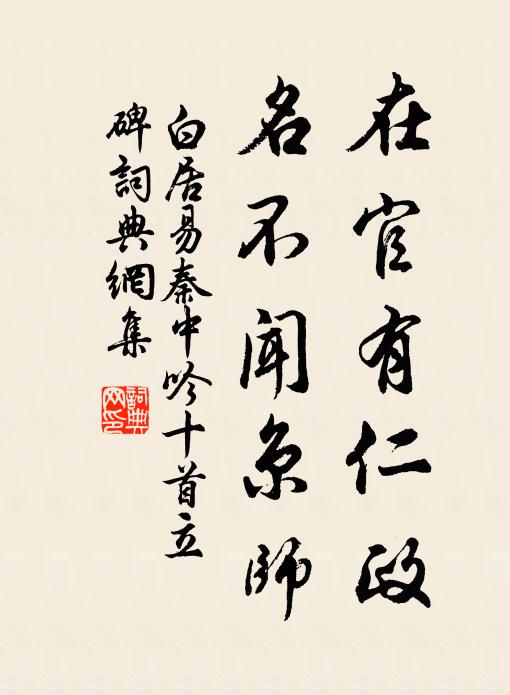 在官有仁政
名不闻京師
白居易秦中吟十首立
碑詞典網集
詞典
网印